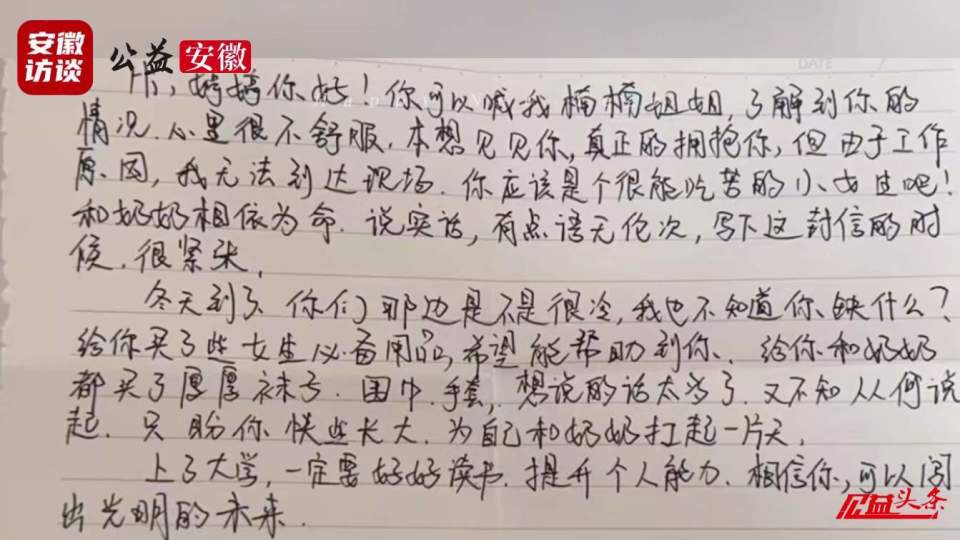 安徽
访谈
公益 安徽
DATE
婷婷你好！你可以喊我楠楠姐姐，了解到你的
情况．心里很不舒服．本想见见你，真正的拥抱你，但由于工作
原因，我无法到达现场．你应该是个很能吃苦的小女生吧！
和奶奶相依为命．说实话，有点语无伦次，写下这封信的时
候．很紧张．
冬天到了．你们那边是不是很冷，我也不知道你缺什么？
给你买了些女生必备用品，希望能帮助到你．给你和奶奶
都买了厚厚袜子．围巾．手套，想说的话太多了．又不知从何说
起．只盼你快些长大．为自己和奶奶扛起一片天．
上了大学，一定要好好读书．提升个人能力．相信你，可以闯
出光明的未来．
公益头条